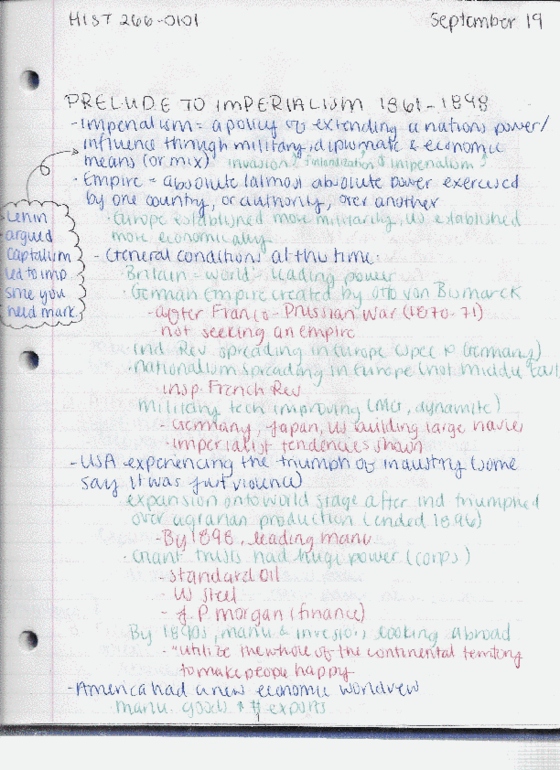 HIST 266-0101
September 19
PRELUDE TO IMPERIALISM 1861-1898
- Imperialism = a policy of extending a nations power/
influence through military, diplomatic & economic
means (or mix) invasion, finlandization, imperialism
- Empire = absolute/almost absolute power exercised
by one country, or authority, over another
· Europe established more militarily, US established
more economically
- General conditions at the time:
· Britain = world-leading power
· German Empire created by Otto von Bismarck
- after Franco-Prussian War (1870-71)
- not seeking an empire
· Ind Rev spreading in Europe (spec to Germany)
· Nationalism spreading in Europe (not Middle East
- insp. French Rev
· Military tech improving (MG, dynamite)
- Germany, Japan, US building large navies
- imperialist tendencies shown
- USA experiencing the triumph of industry (some
say it was just violence)
expansion onto world stage after ind triumphed
over agrarian production (ended 1896)
- By 1898, leading manu
· Giant trusts had huge power (corps)
- Standard Oil
- US Steel
- J.P. Morgan (finance)
By 1890s, manu & investors looking abroad
- "utilize the whole of the continental territory
to make people happy
- America had a new economic worldview
manu. goods exports
Lenin
argued
capitalism
led to imp
since you
need mark.